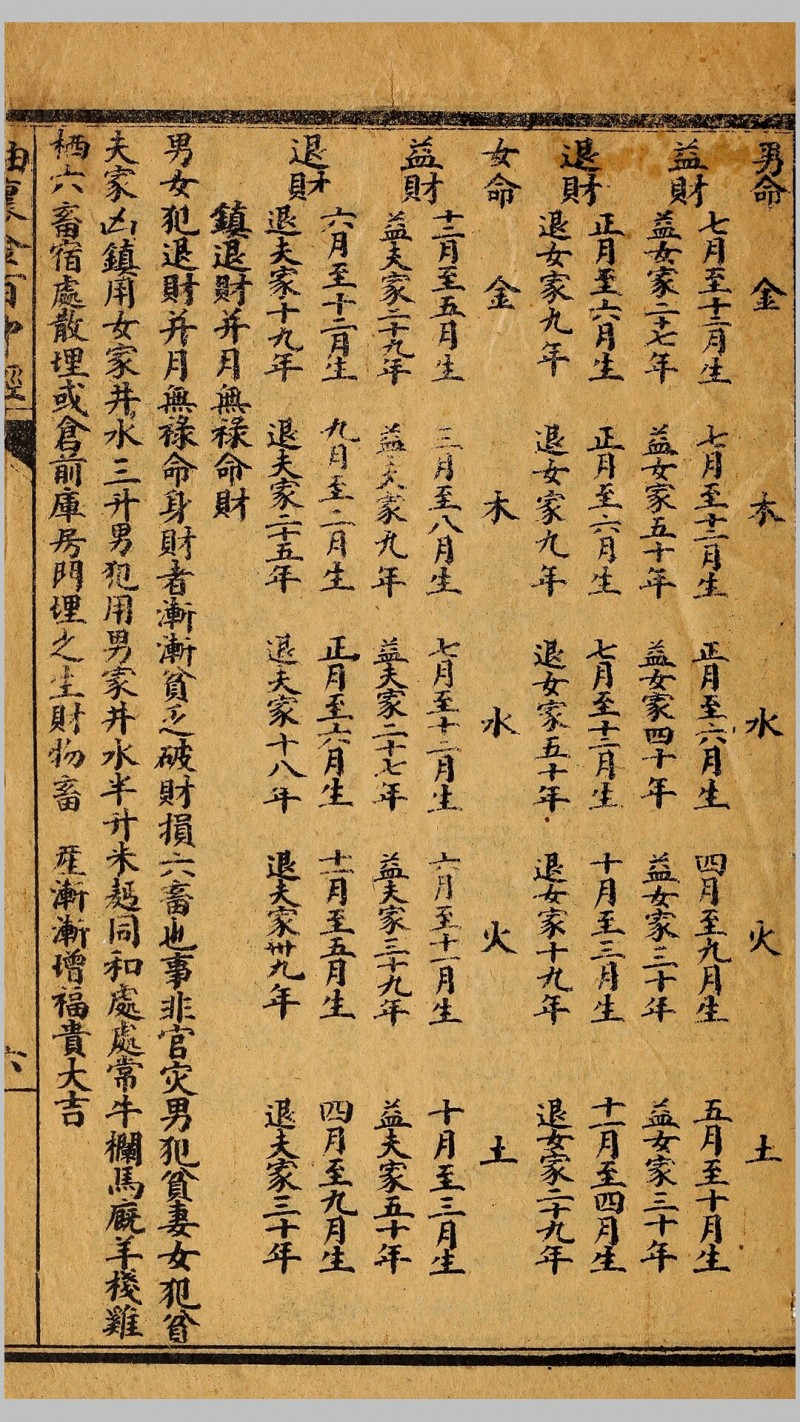 男命 金 木 水 火 土
益財 七月至十二月生 七月至十二月生 正月至六月生 四月至九月生 五月至十月生
益女家二十七年 益女家五十年 益女家四十年 益女家三十年 益女家三十年
退財 正月至六月生 正月至六月生 七月至十二月生 十月至三月生 十一月至四月生
退女家九年 退女家九年 退女家五十年 退女家十九年 退女家二十九年
女命 金 木 水 火 土
益財 十二月至五月生 三月至八月生 七月至十二月生 六月至十一月生 十月至三月生
益夫家二十九年 益夫家九年 益夫家二十七年 益夫家三十九年 益夫家五十年
退財 六月至十二月生 九月至二月生 正月至六月生 十二月至五月生 四月至九月生
退夫家十九年 退夫家二十五年 退夫家十八年 退夫家卅九年 退夫家三十年
鎮退財并月無祿命財
男女犯退財并月無祿命身財者漸漸貧乏破財損六畜也事非官灾男犯貧妻女犯貧
夫家凶鎮用女家井水三升男犯用男家井水半升米麺同和處處常牛欄馬廐羊棧雞
栖六畜宿處散埋或倉前庫房門埋之生財物畜 産漸漸增福貴大吉
六